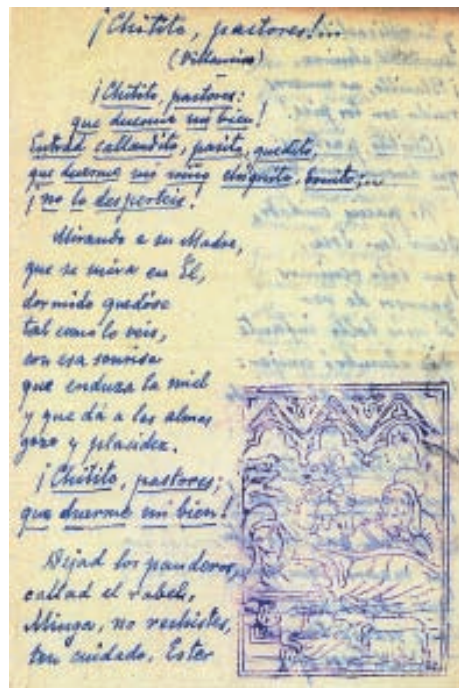 ¡Chitito, pastores!...
(Villancico)
¡Chitito, pastores:
que duerme mi bien!
Entrad callandito, pasito, quedito,
que duerme mi niño chiquito, bonito;...
¡no lo desperteis!
Mirando a su Madre,
que se mira en Él,
dormido quedóse
tal como lo veis,
con esa sonrisa
que endulza la miel
y que dá a las almas
gozo y placidez.
¡Chitito, pastores;
que duerme mi bien!
Dejad los panderos,
callad el rabel,
Minga, no rechistes,
ten cuidado, Ester